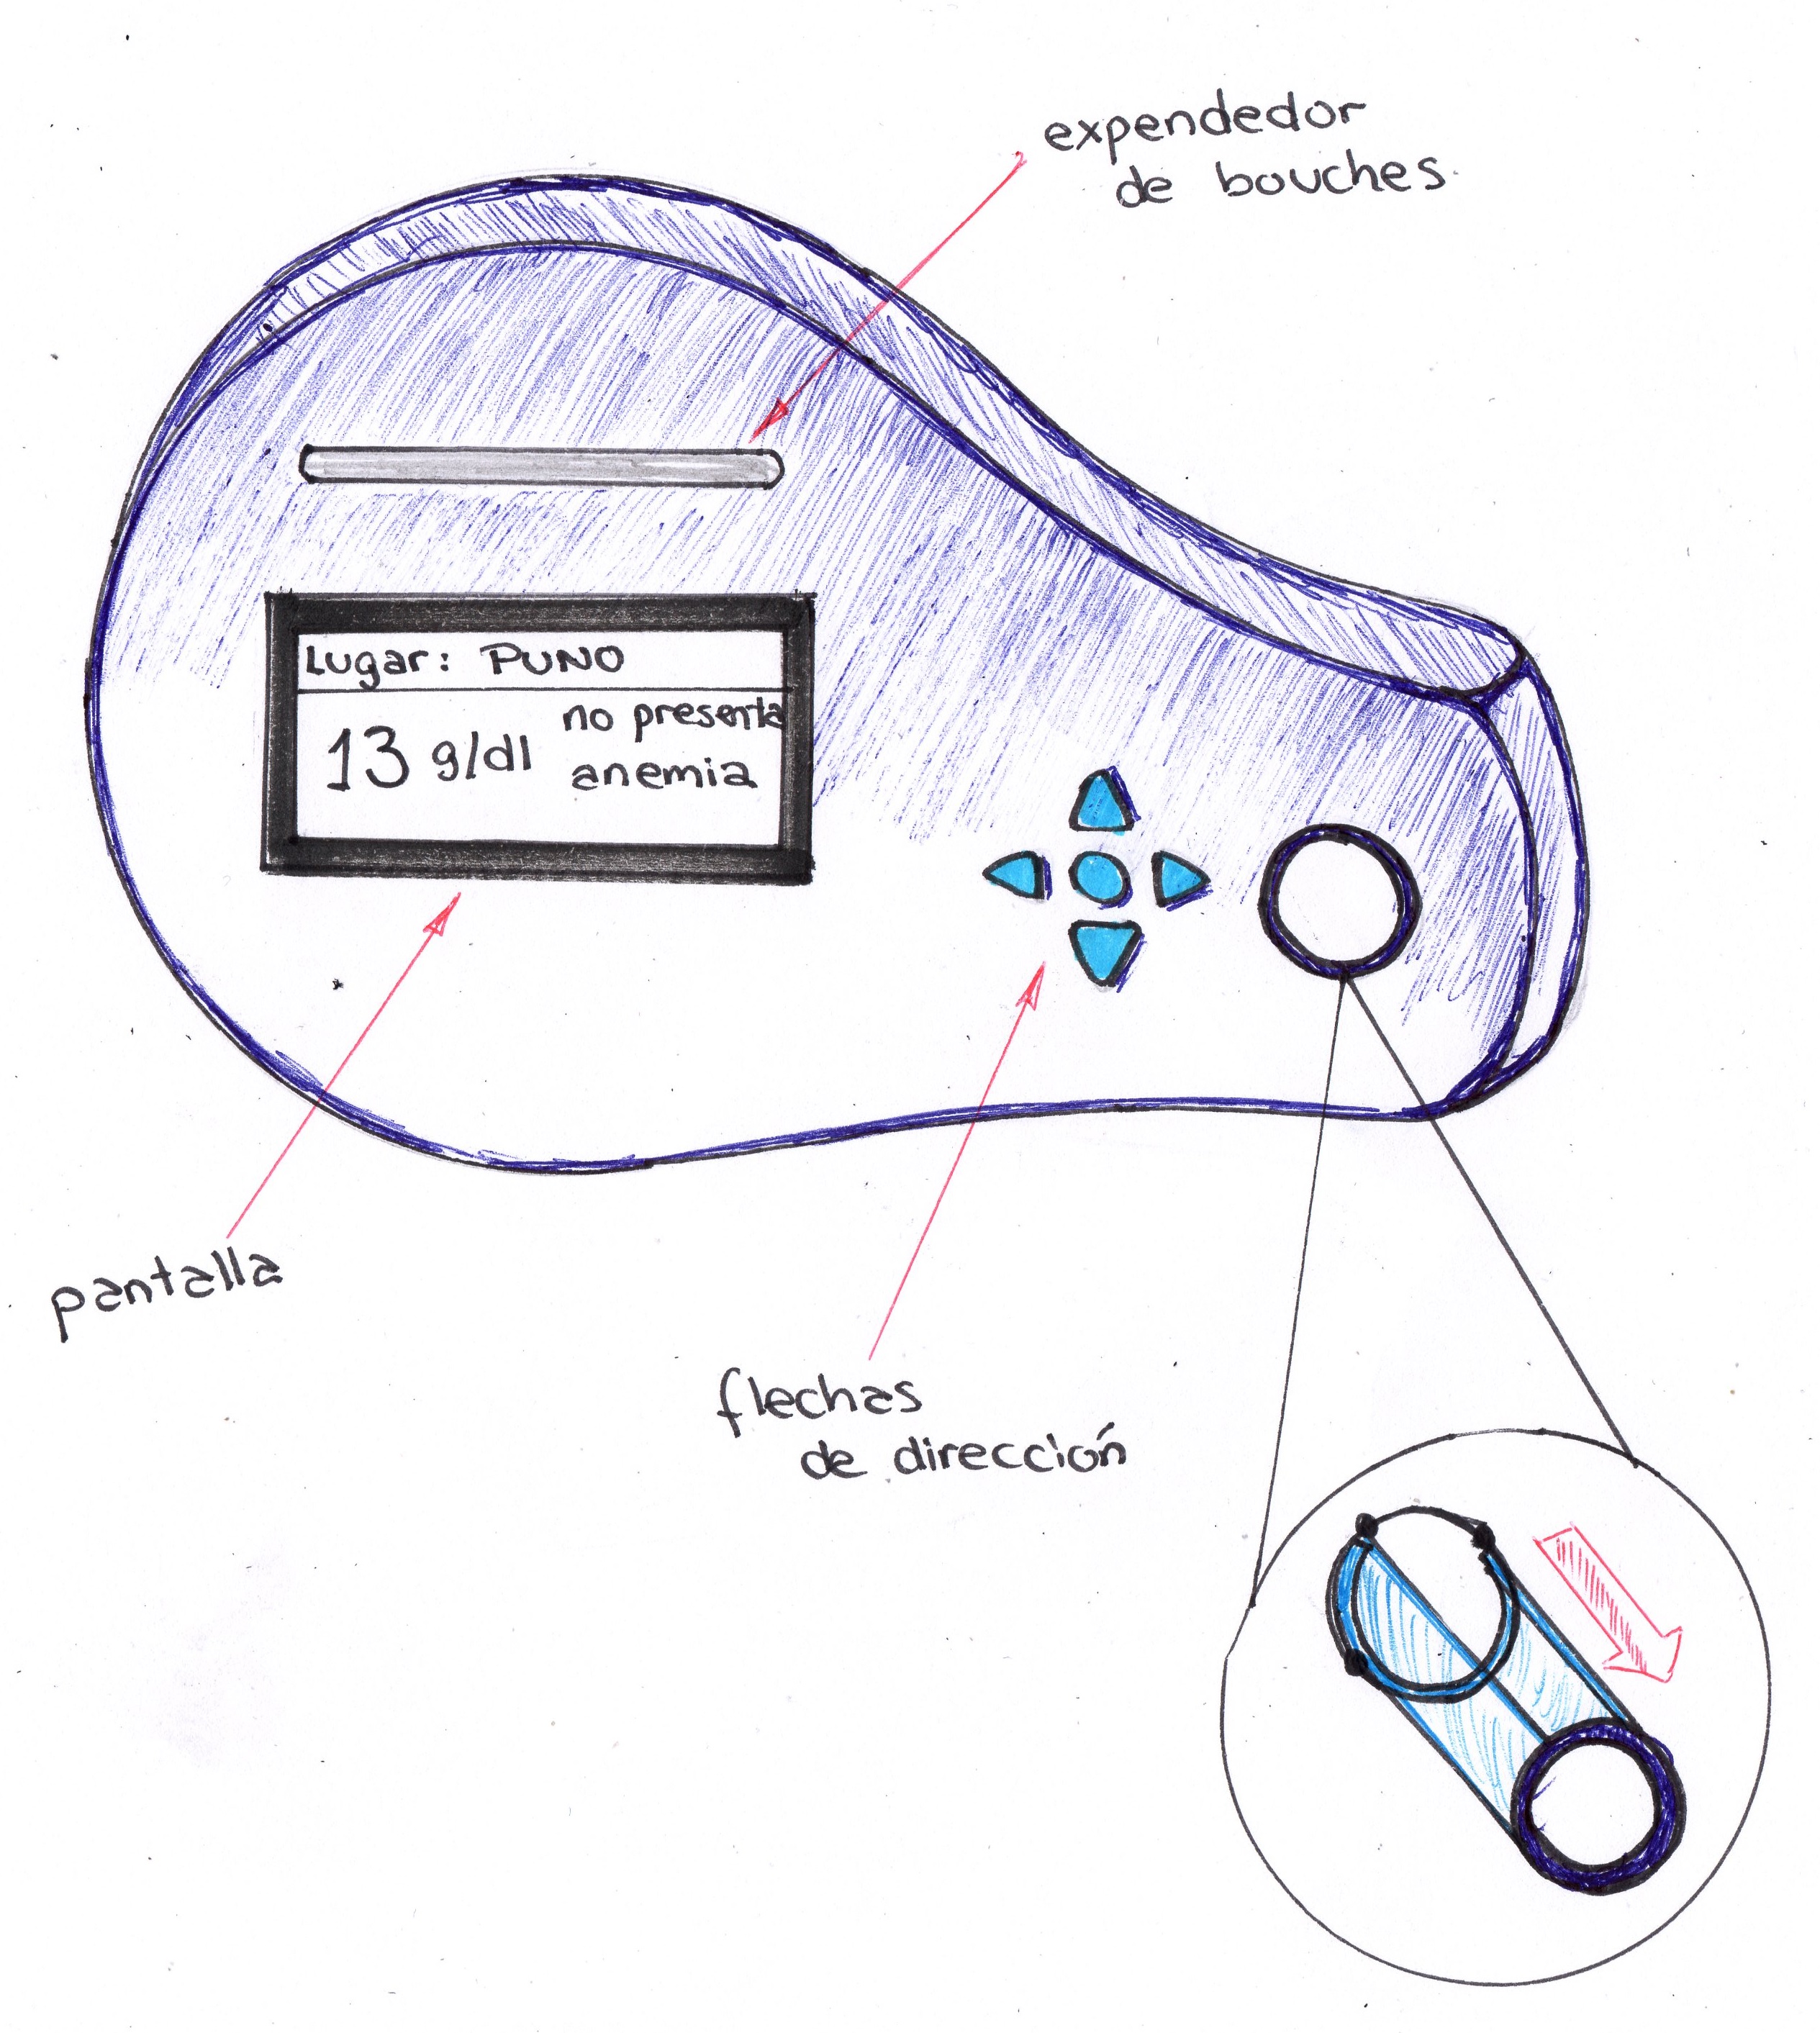 expendedor
de bouches
Lugar: PUNO
13 g/dl no presenta
anemia
pantalla
flechas
de dirección